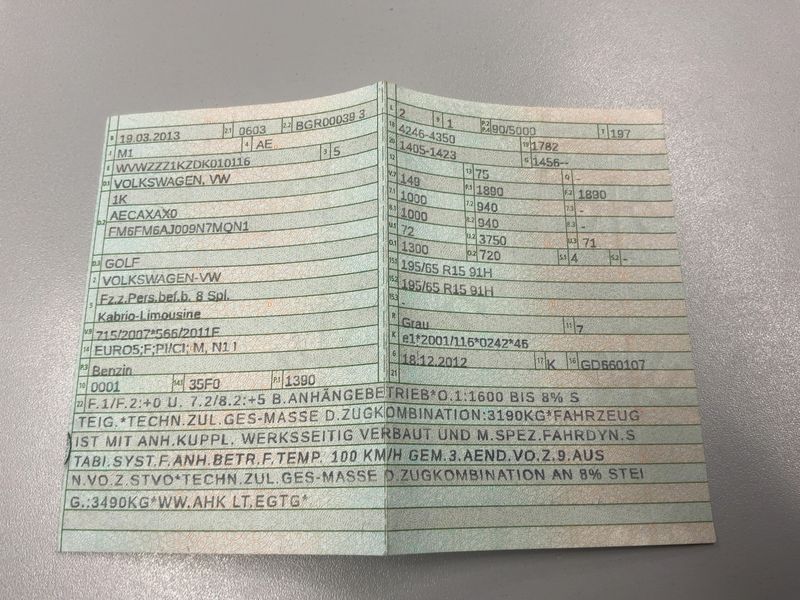 B 19.03.2013 2.1 0603 2.2 BGR00039 3
J M1 4 AE
E WVWZZZ1KZDK010116 3 5
D.1 VOLKSWAGEN, VW
1K
D.2 AECAXAX0
FM6FM6AJ009N7MQN1
D.3 GOLF
2 VOLKSWAGEN-VW
5 Fz.z.Pers.bef.b. 8 Spl.
Kabrio-Limousine
V.9 715/2007*566/2011F
14 EURO5;F;PI/CI; M, N1 I
P.3 Benzin
10 0001 14.1 35F0 P.1 1390
L 2 9 1 P.2 P.4 90/5000 T 197
18 4246-4350 19 1782
20 1405-1423 G 1456--
12 13 75 Q -
V.7 149 F.1 1890 F.2 1890
7.1 1000 7.2 940 7.3 -
8.1 1000 8.2 940 8.3 -
U.1 72 U.2 3750 U.3 71
O.1 1300 O.2 720 S.1 4 S.2 -
15.1 195/65 R15 91H
15.2 195/65 R15 91H
15.3 -
R Grau 11 7
K e1*2001/116*0242*46
6 18.12.2012 17 K 16 GD660107
21
22 F.1/F.2:+0 U. 7.2/8.2:+5 B.ANHÄNGEBETRIEB*O.1:1600 BIS 8% S
TEIG.*TECHN.ZUL.GES-MASSE D.ZUGKOMBINATION:3190KG*FAHRZEUG
IST MIT ANH.KUPPL. WERKSSEITIG VERBAUT UND M.SPEZ.FAHRDYN.S
TABI.SYST.F.ANH.BETR.F.TEMP. 100 KM/H GEM.3.AEND.VO.Z.9.AUS
N.VO.Z.STVO*TECHN.ZUL.GES-MASSE D.ZUGKOMBINATION AN 8% STEI
G.:3490KG*WW.AHK LT.EGTG*